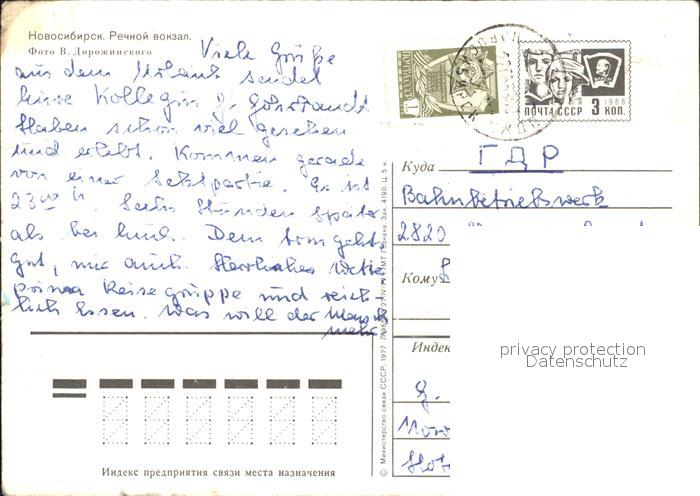 Новосибирск. Речной вокзал.
Фото В. Дорожинского
Viele Grüße
aus dem Urlaub sendet
Eure Kollegin
Haben schon viel gesehen
und erlebt. Kommen gerade
von einer Sektpartie. Es ist
23.00 h. Sechs Stunden später
als bei Euch. Dem geht's
gut, mir auch. Herrliches Wetter
prima Reisegruppe und reich-
lich Essen. Was will der Mensch
mehr
ПОЧТА СССР 3 КОП.
1966
Куда ГДР
Bahnbetriebswerk
2820
Кому
Индек
© Министерство связи СССР, 1977
Зак. 4190. Ц. 5 к.
Индекс предприятия связи места назначения
privacy protection
Datenschutz